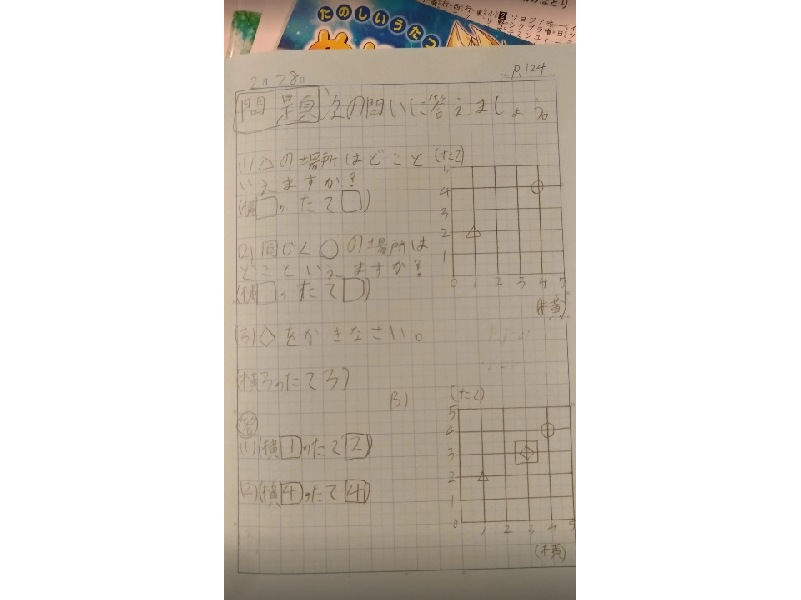 たのしいうたっ
2月28日
P124
問題 次の問いに答えましょう。
(1)△の場所はどこと
いえますか?
(横□,たて□)
(たて)
4
3
2
1
0 1 2 3 4 5
(横)
(2)同じく○の場所は
どこといえますか?
(横□,たて□)
(3)◇をかきなさい。
(横3,たて3)
答
(1)(横1,たて2)
(2)(横4,たて4)
3)
(たて)
5
4
3
2
1
0 1 2 3 4 5
(横)